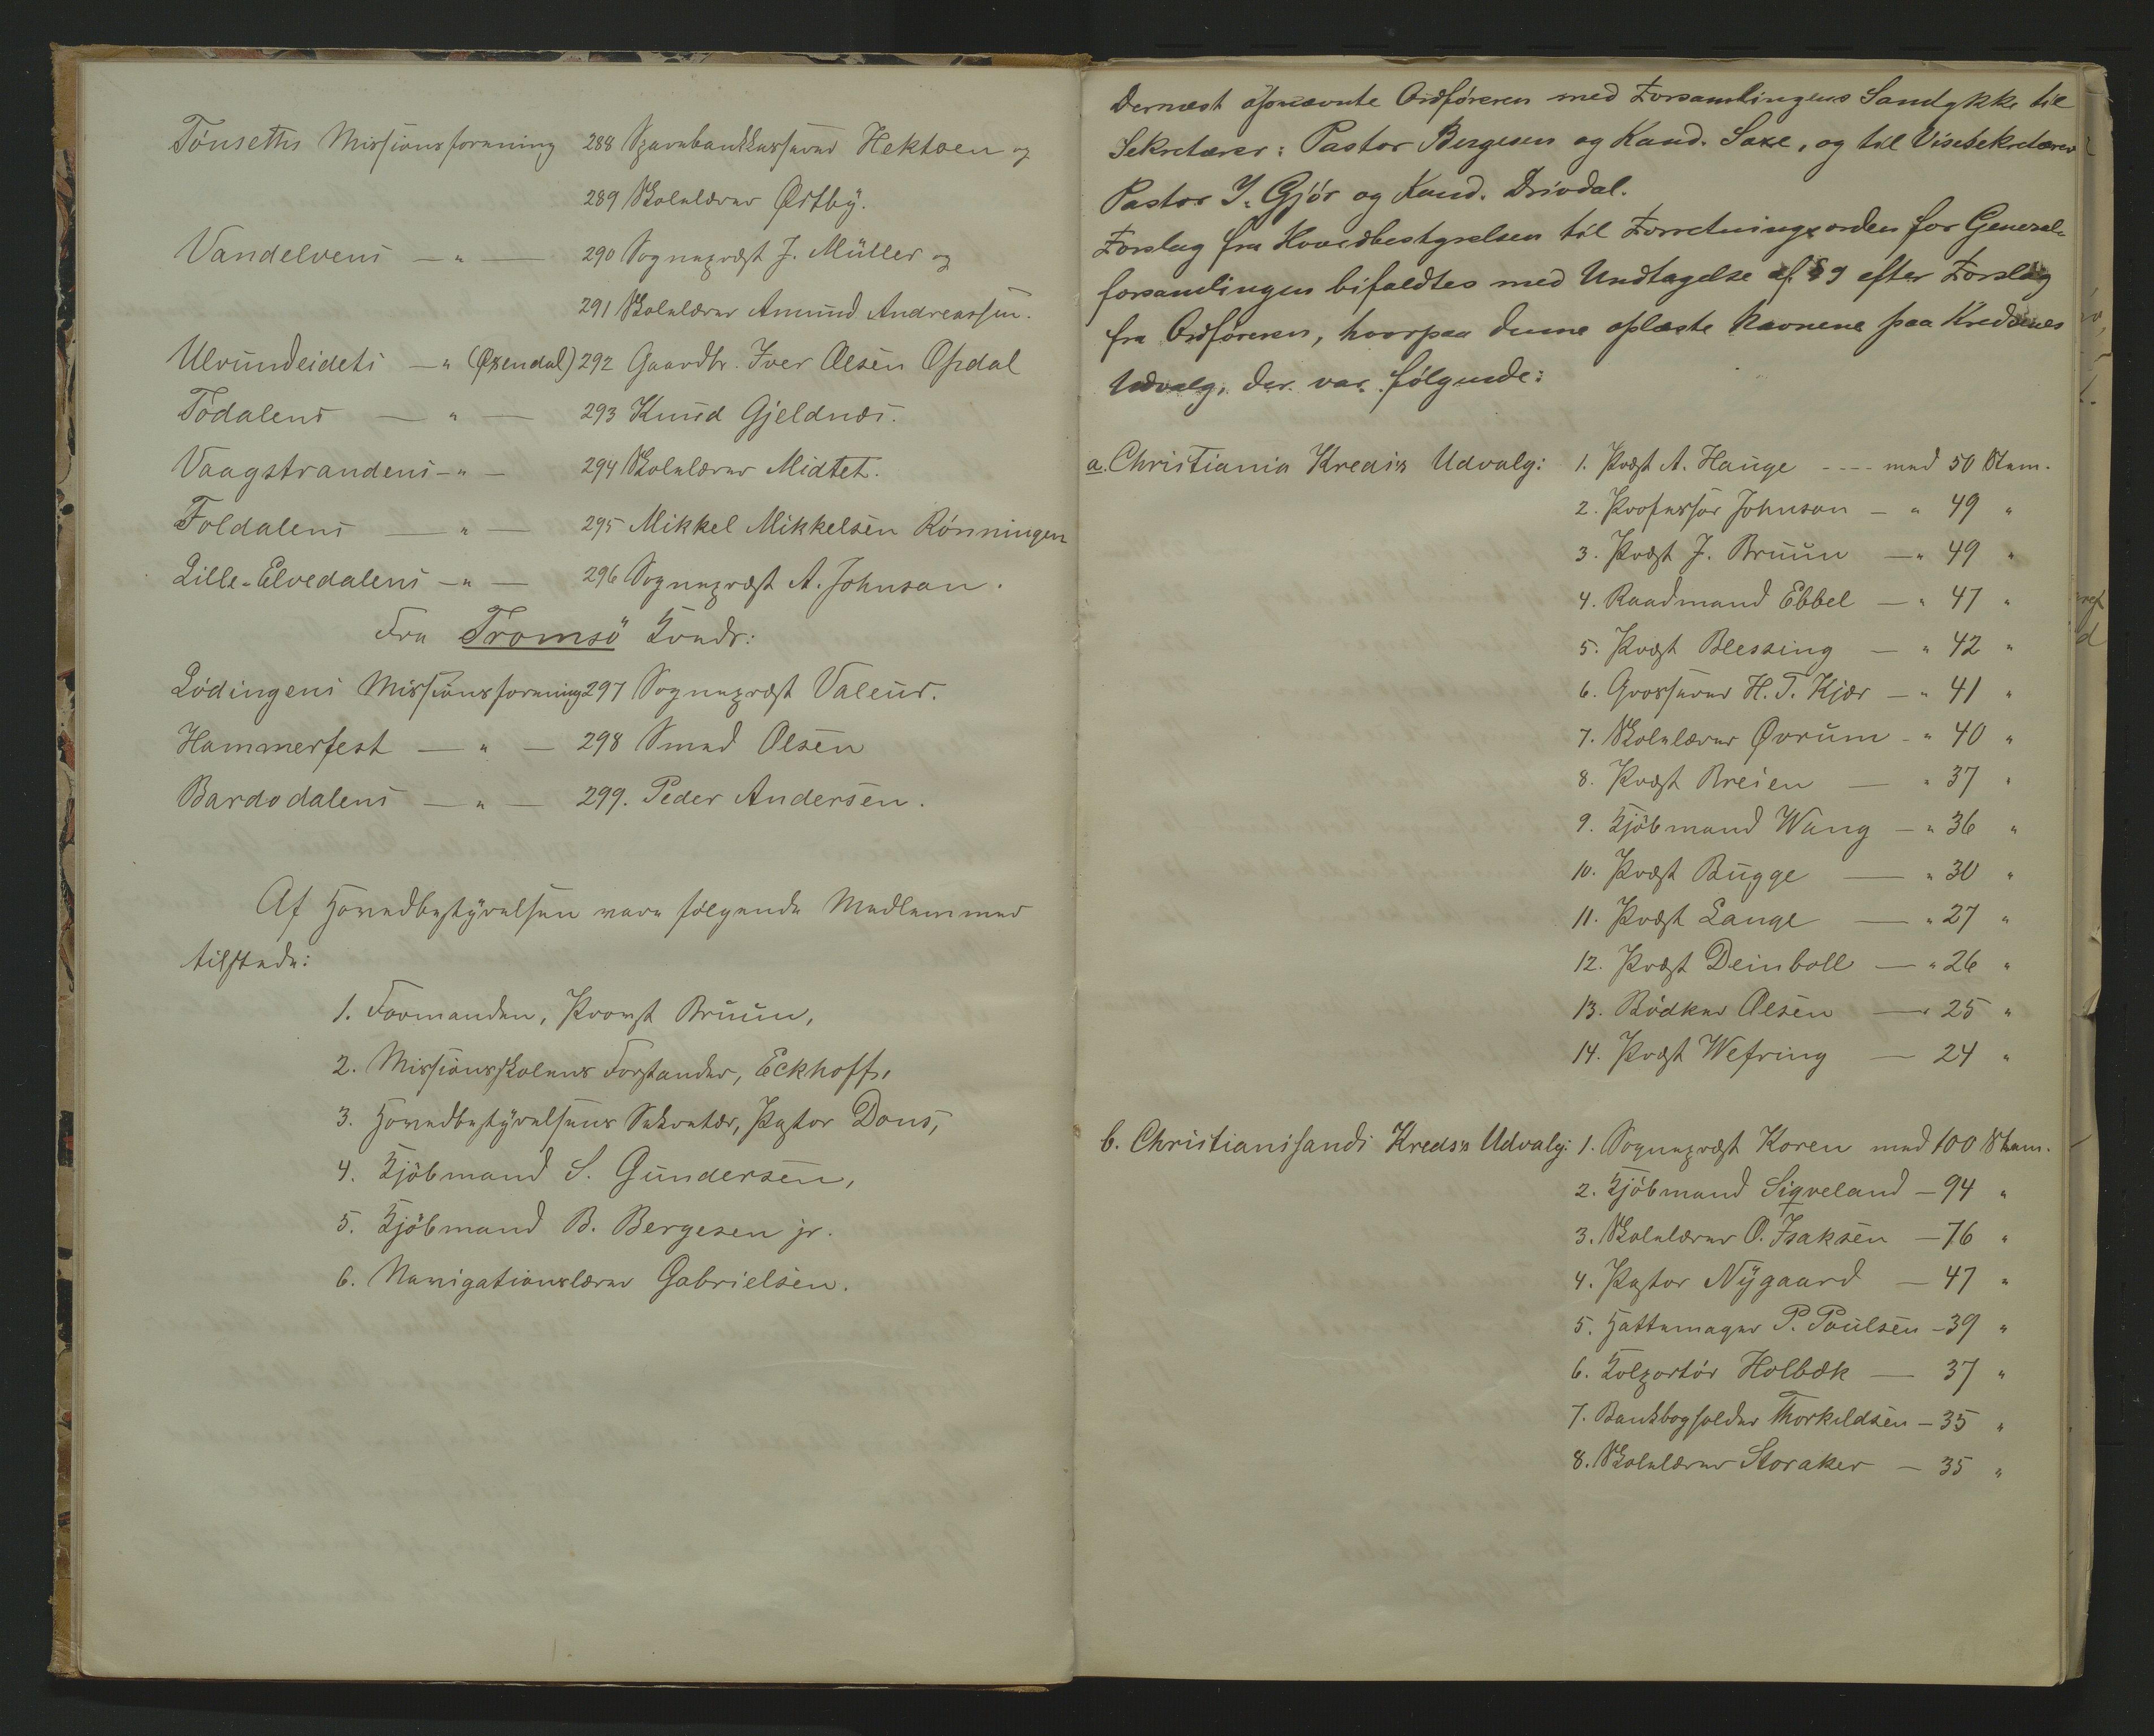 Tönseths Missionsforening 288 Sparebankkasserer Hektoen og
289 Skolelærer Østby.
Vandelvens — " — 290 Sognepræst J. Müller og
291 Skolelærer Amund Andreassen.
Ulvundeidets — " (Øxendal) 292 Gaardbr. Iver Olsen Opdal
Todalens — " — 293 Knud Gjeldnæs.
Vaagstrandens — " — 294 Skolelærer Midtet.
Foldalens — " — 295 Mikkel Mikkelsen Rönningen
Lille-Elvedalens — " — 296 Sognepræst A. Johnson.
Fra Tromsö Kreds:
Lödingens Missionsforening 297 Sognepræst Valeur.
Hammerfest — " — 298 Smed Olsen
Bardodalens — " — 299. Peder Andersen.
Af Hovedbestyrelsen vare følgende Medlemmer
tilstede:
1. Formanden, Provst Bruun,
2. Missionsskolens Forstander, Eckhoff,
3. Hovedbestyrelsens Sekretær, Pastor Dons,
4. Kjöbmand S. Gundersen,
5. Kjöbmand B. Bergesen jr.
6. Navigationslærer Gabrielsen.
Dernæst opnævnte Ordföreren med Forsamlingens Samtykke til
Sekretærer: Pastor Bergesen og Kand. Saxe, og til Visesekretærer
Pastor I. Gjör og Kand. Drivdal.
Forslag fra Hovedbestyrelsen til Forretningsorden for General-
forsamlingen bifaldtes med Undtagelse af § 9 efter Forslag
fra Ordföreren, hvorpaa denne oplæste Navnene paa Kredsenes
Udvalg, der var fölgende:
a. Christiania Kreds's Udvalg: 1. Præst A. Hauge ---- med 50 Stem.
2. Professor Johnson — " 49 "
3. Præst J. Bruun — " 49 "
4. Raadmand Ebbel — " 47 "
5. Præst Blessing — " 42 "
6. Grosserer H. T. Kjær — " 41 "
7. Skolelærer Øvrum — " 40 "
8. Præst Breien — " 37 "
9. Kjöbmand Wang — " 36 "
10. Præst Bugge — " 30 "
11. Præst Lange — " 27 "
12. Præst Deinboll — " 26 "
13. Bödker Olsen — " 25 "
14. Præst Wefring — 24 "
b. Christianssands Kreds's Udvalg: 1. Sognepræst Koren med 100 Stem.
2. Kjöbmand Siqveland — 94 "
3. Skolelærer O. Isaksen — 76 "
4. Pastor Nygaard — 47 "
5. Hattemager P. Poulsen — 39 "
6. Kolportör Holbæk — 37 "
7. Bankbogholder Thorkildsen — 35 "
8. Skolelærer Storaker — 35 "